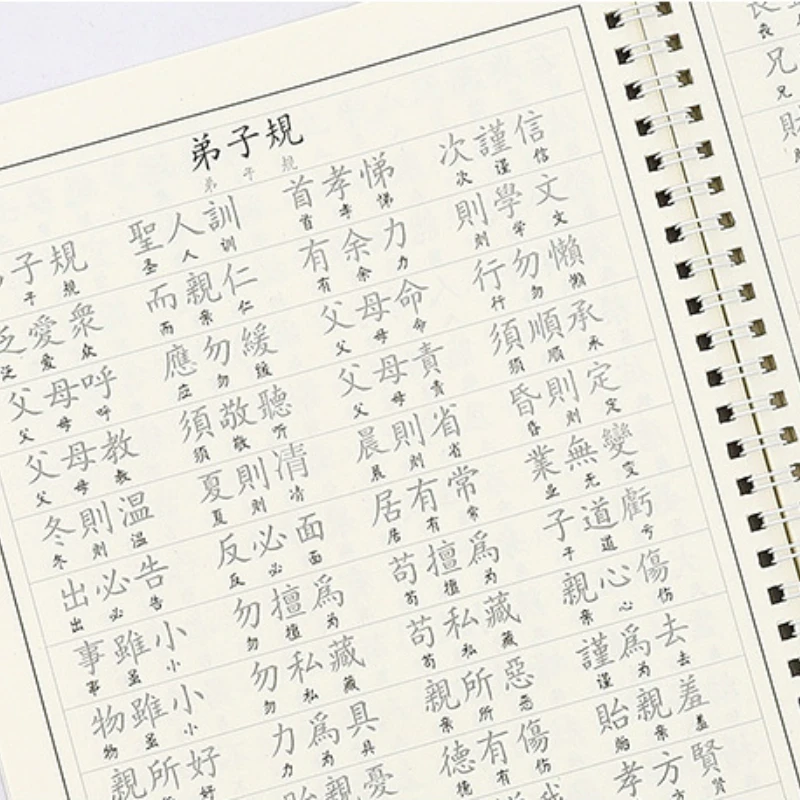 弟子規
弟子規
子規 聖人訓 首孝悌 次謹信
子規 圣人训 首孝悌 次谨信
泛愛衆 而親仁 有余力 則學文
泛爱众 而亲仁 有余力 则学文
父母呼 應勿緩 父母命 行勿懶
父母呼 应勿缓 父母命 行勿懒
父母教 須敬聽 父母責 須順承
父母教 须敬听 父母责 须顺承
冬則温 夏則清 晨則省 昏則定
冬则温 夏则清 晨则省 昏则定
出必告 反必面 居有常 業無變
出必告 反必面 居有常 业无变
事雖小 勿擅爲 苟擅爲 子道虧
事虽小 勿擅为 苟擅为 子道亏
物雖小 勿私藏 苟私藏 親心傷
物虽小 勿私藏 苟私藏 亲心伤
親所好 力爲具 親所惡 謹爲去
好 力为具 亲所恶 谨为去
貽親憂 德有傷 貽親羞
德有伤 贻亲羞
孝方賢
孝方贤
兄
兄
財